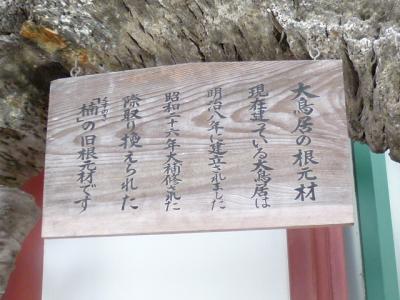 大鳥居の根元材
現在建っている大鳥居は
明治八年に建立されました
昭和二十六年大補修された
際取り換えられた
「楠」の旧根元材です